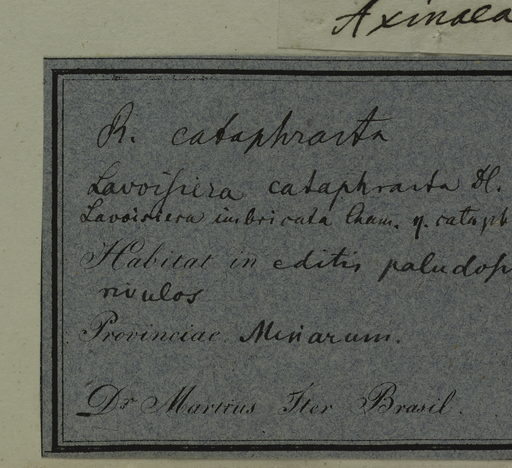 Axinaea
R. cataphracta
Lavoisiera cataphracta H.
Lavoisiera imbricata Cham. η. cataph
Habitat in editis paludos
rivulos
Provinciae Minarum.
Dr Martius Iter Brasil.